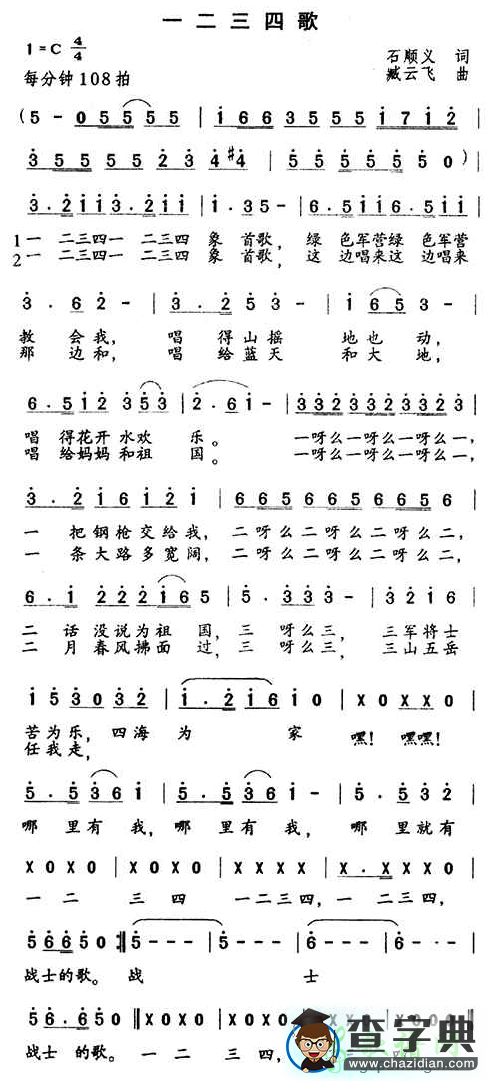 一二三四歌
1=C 4/4
石顺义 词
每分钟108拍
臧云飞 曲
(5 - 0 5 5 5 5 | i 6 6 3 5 5 | i 7 i 2 |
3 5 5 5 5 2 3 4 #4 | 5 5 5 5 5 5 5 0) |
3·2 i i 3·2 i i | i·3 5 - | 6·5 i i 6·5 i i |
1 一 二三四一 二三四 象 首歌, 绿 色军营绿 色军营
2 一 二三四一 二三四 象 首歌, 这 边唱来这 边唱来
3·6 2 - | 3·2 5 3 - | i 6 5 3 - |
教 会我, 唱 得山摇 地也 动,
那 边和, 唱 给蓝天 和大 地,
6·5 i 2 3 5 3 | 2·6 i - | 3 3 2 3 3 2 3 3 2 3 |
唱 得花开 水欢 乐。 一呀么一呀么一呀么一,
唱 给妈妈 和祖 国。 一呀么一呀么一呀么一,
3·2 i 6 i 2 i | 6 6 5 6 6 5 6 6 5 6 |
一 把钢枪交给我, 二呀么二呀么二呀么二,
一 条大路多宽阔, 二呀么二呀么二呀么二,
6·i 2 2 2 i 6 5 | 5·3 3 3 - | 3 2 i 6 |
二 话没说为祖 国, 三 呀么三, 三军将士
二 月春风拂面 过, 三 呀么三, 三山五岳
i 5 3 0 3 2 | i·2 i 6 i 0 | X 0 X X 0 |
苦为乐, 四海 为 家 嘿! 嘿嘿!
任我走,
5·5 3 6 i - | 5·5 3 6 i - | 5·5 3 2 |
哪 里有 我, 哪 里有 我, 哪 里就有
X 0 X 0 | X 0 X 0 | X X X X | X·X X X 0 |
一 二 三 四 一二三四, 一 二三四,
5 6 6 5 0 :‖ 5 - - - | 5 - - - | 6 - - - | 6 - - - |
战士的歌。 战 士
5 6·6 5 0 | X 0 X 0 | X 0 X 0 |
战士 的歌。 一 二 三 四,
查字典
www.chazidian.com